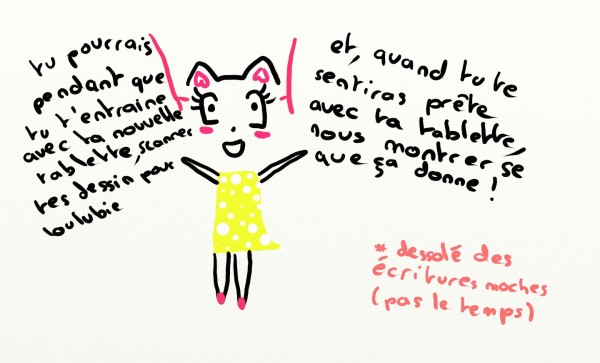 tu pourrais
pendant que
tu t'entraine
avec ta nouvelle
tablette, scanner
tes dessin pour
loulubie
et, quand tu te
sentiras prête
avec ta tablette,
nous montrer se
que ça donne !
* dessolé des
écritures moches
(pas le temps)